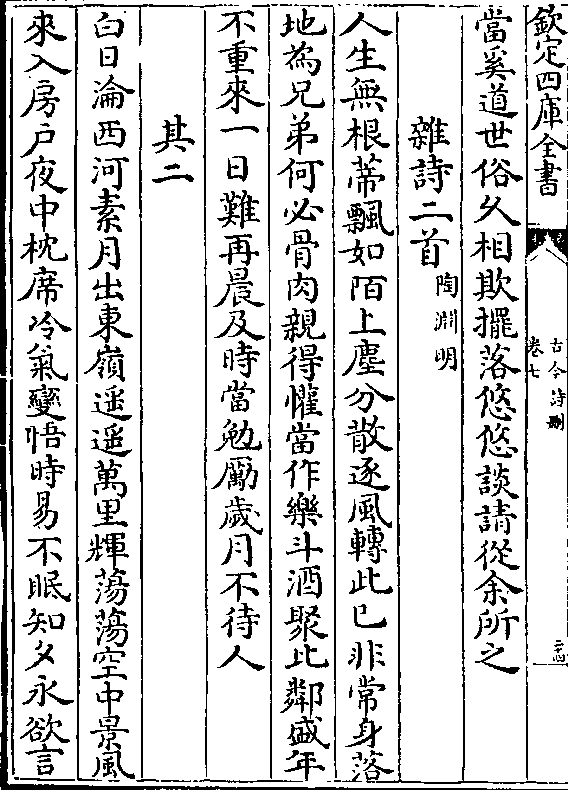 欽定四庫全書
古今詩刪
卷七
二十四
當奚道世俗久相欺擺落悠悠談請從余所之
雜詩二首
陶淵明
人生無根蔕飄如陌上塵分散逐風轉此已非常身落
地為兄弟何必骨肉親得懽當作樂斗酒聚比鄰盛年
不重來一日難再晨及時當勉勵歲月不待人
其二
白日淪西河素月出東嶺遥遥萬里輝蕩蕩空中景風
來入房戶夜中枕席冷氣變悟時易不眠知夕永欲言